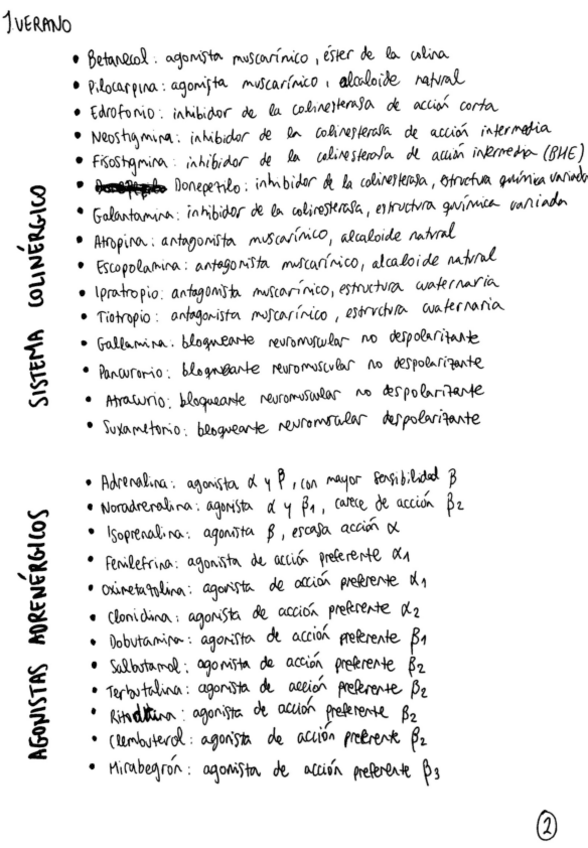 1 VERANO
SISTEMA COLINÉRGICO
• Betanecol: agonista muscarínico, éster de la colina
• Pilocarpina: agonista muscarínico, alcaloide natural
• Edrofonio: inhibidor de la colinesterasa de acción corta
• Neostigmina: inhibidor de la colinesterasa de acción intermedia
• Fisostigmina: inhibidor de la colinesterasa de acción intermedia (BHE)
• Donepezilo: inhibidor de la colinesterasa, estructura química variada
• Galantamina: inhibidor de la colinesterasa, estructura química variada
• Atropina: antagonista muscarínico, alcaloide natural
• Escopolamina: antagonista muscarínico, alcaloide natural
• Ipratropio: antagonista muscarínico, estructura cuaternaria
• Tiotropio: antagonista muscarínico, estructura cuaternaria
• Gallamina: bloqueante neuromuscular no despolarizante
• Pancuronio: bloqueante neuromuscular no despolarizante
• Atracurio: bloqueante neuromuscular no despolarizante
• Suxametonio: bloqueante neuromuscular despolarizante
AGONISTAS ADRENÉRGICOS
• Adrenalina: agonista α y β, con mayor sensibilidad β
• Noradrenalina: agonista α y β1, carece de acción β2
• Isoprenalina: agonista β, escasa acción α
• Fenilefrina: agonista de acción preferente α1
• Oximetazolina: agonista de acción preferente α1
• Clonidina: agonista de acción preferente α2
• Dobutamina: agonista de acción preferente β1
• Salbutamol: agonista de acción preferente β2
• Terbutalina: agonista de acción preferente β2
• : agonista de acción preferente β2
• Clembuterol: agonista de acción preferente β2
• Mirabegrón: agonista de acción preferente β3
2